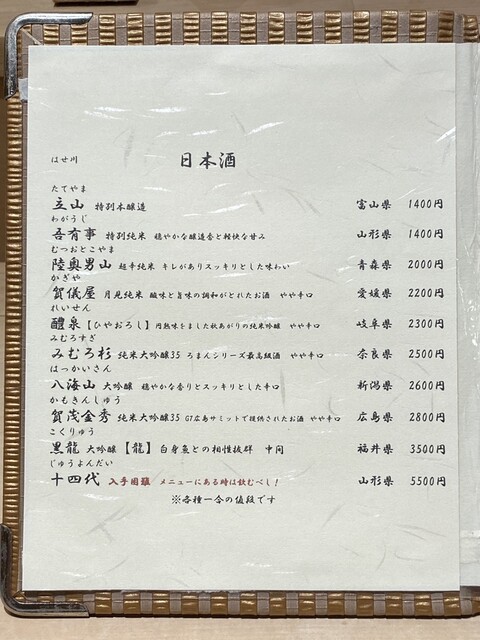 はせ川 日本酒
たてやま
立山 特別本醸造 富山県 1400円
わがうじ
吾有事 特別純米 穏やかな醸造香と軽快な甘み 山形県 1400円
むつおとこやま
陸奥男山 超辛純米 キレがありスッキリとした味わい 青森県 2000円
かぎや
賀儀屋 月見純米 酸味と旨味の調和がとれたお酒 やや辛口 愛媛県 2200円
れいせん
醴泉【ひやおろし】円熟味をました秋あがりの純米吟醸 やや辛口 岐阜県 2300円
みむろすぎ
みむろ杉 純米大吟醸35 ろまんシリーズ最高級酒 やや辛口 奈良県 2500円
はっかいさん
八海山 大吟醸 穏やかな香りとスッキリとした辛口 新潟県 2600円
かもきんしゅう
賀茂金秀 純米大吟醸35 G7広島サミットで提供されたお酒 やや辛口 広島県 2800円
こくりゅう
黒龍 大吟醸【龍】白身魚との相性抜群 中間 福井県 3500円
じゅうよんだい
十四代 入手困難 メニューにある時は飲むべし! 山形県 5500円
※各種一合の値段です